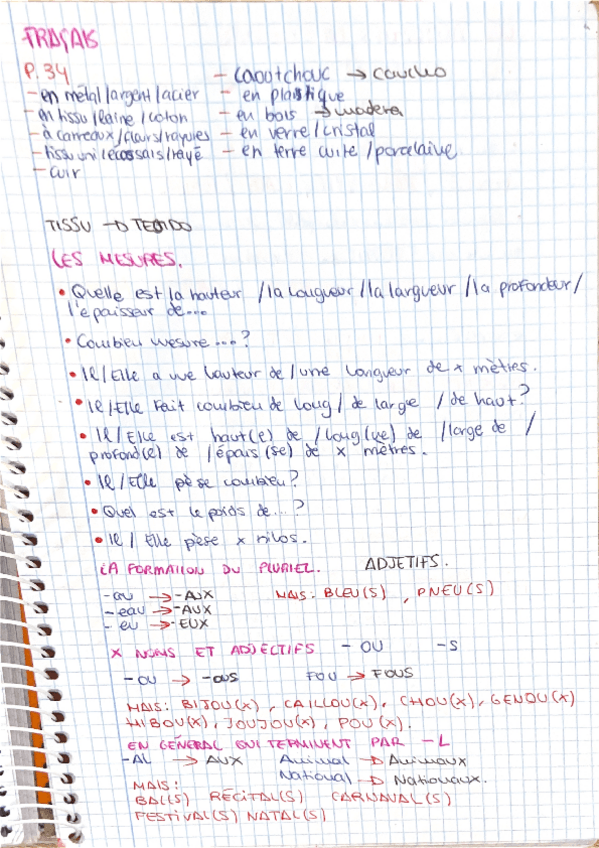 FRAÇAIS
P. 34
- en métal/argent/acier
- en tissu/laine/coton
- à carreaux/fleurs/rayures
- tissu uni/écossais/rayé
- cuir
- caoutchouc → caucho
- en plastique
- en bois → madera
- en verre/cristal
- en terre cuite/porcelaine
TISSU → TEJIDO
LES MESURES.
• Quelle est la hauteur /la longueur/la largueur/la profondeur/
l'épaisseur de...
• Combien mesure ...?
• Il/Elle a une hauteur de/une longueur de x mètres.
• Il/Elle Fait combien de long/ de large / de haut?
• Il/Elle est haut(e) de /long(ue) de /large de /
profond(e) de /épais(se) de x mètres.
• Il/Elle pèse combien?
• Quel est le poids de...?
• Il/Elle pèse x kilos.
LA FORMATION DU PLURIEL. ADJETIFS.
-au → -AUX MAIS: BLEU(S), PNEU(S)
-eau → -AUX
- eu → -EUX
X NOMS ET ADJECTIFS - OU -S
-OU → -OUS FOU → FOUS
MAIS: BIJOU(X), CAILLOU(X), CHOU(X), GENOU(X)
HIBOU(X), JOUJOU(X), POU(X).
EN GÉNÉRAL QUI TERMINENT PAR -L
-AL → AUX Animal → Animaux
National → Nationaux.
MAIS:
BAL(S) RÉCITAL(S) CARNAVAL(S)
FESTIVAL(S) NATAL(S)